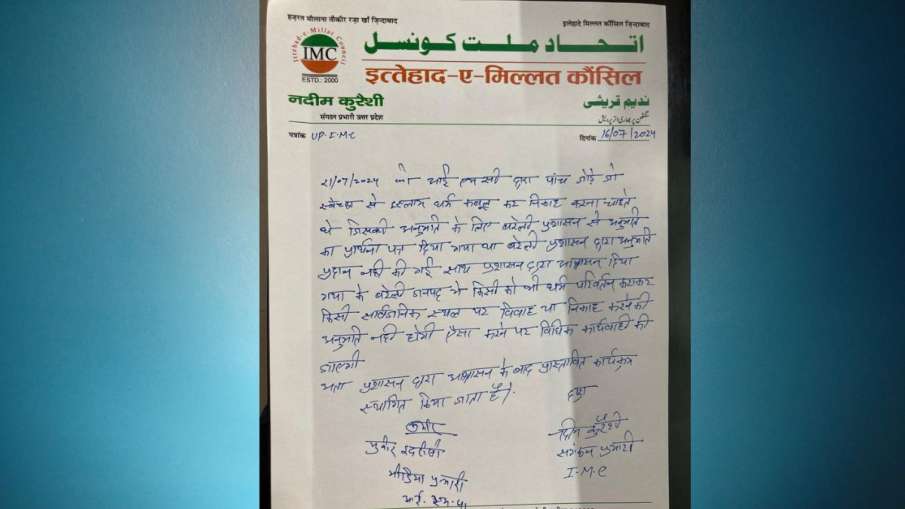 हज़रत मौलाना तौकीर रज़ा खाँ ज़िन्दाबाद
इत्तेहादे मिल्लत कौंसिल ज़िन्दाबाद
Ittehad-e Millat Council
IMC
ESTD.: 2000
اتحاد ملت کونسل
इत्तेहाद-ए-मिल्लत कौंसिल
नदीम कुरैशी
ندیم قریشی
संगठन प्रभारी उत्तर प्रदेश
पत्रांक UP-I-M-C
दिनांक 16/07/2024
21/07/2024 को आई एम सी द्वारा पांच जोड़े जो
स्वेच्छा से इस्लाम धर्म कबूल कर निकाह करना चाहते
थे जिसकी अनुमति के लिए बरेली प्रशासन से अनुमति
का प्रार्थना पत्र दिया गया था बरेली प्रशासन द्वारा अनुमति
प्रदान नही की गई साथ प्रशासन द्वारा आश्वासन दिया
गया के बरेली जनपद मे किसी को भी धर्म परिवर्तन कराकर
किसी सार्वजनिक स्थल पर विवाह या निकाह करने की
अनुमति नही होगी ऐसा करने पर विधिक कार्यवाही की
जाएगी
अतः प्रशासन द्वारा आश्वासन के बाद प्रास्तावित कार्यक्रम
स्थागित किया जाता है।
मुनीर इदरीसी
मीडिया प्रभारी
आई. एम. सी
नदीम कुरैशी
संगठन प्रभारी
I-M-C